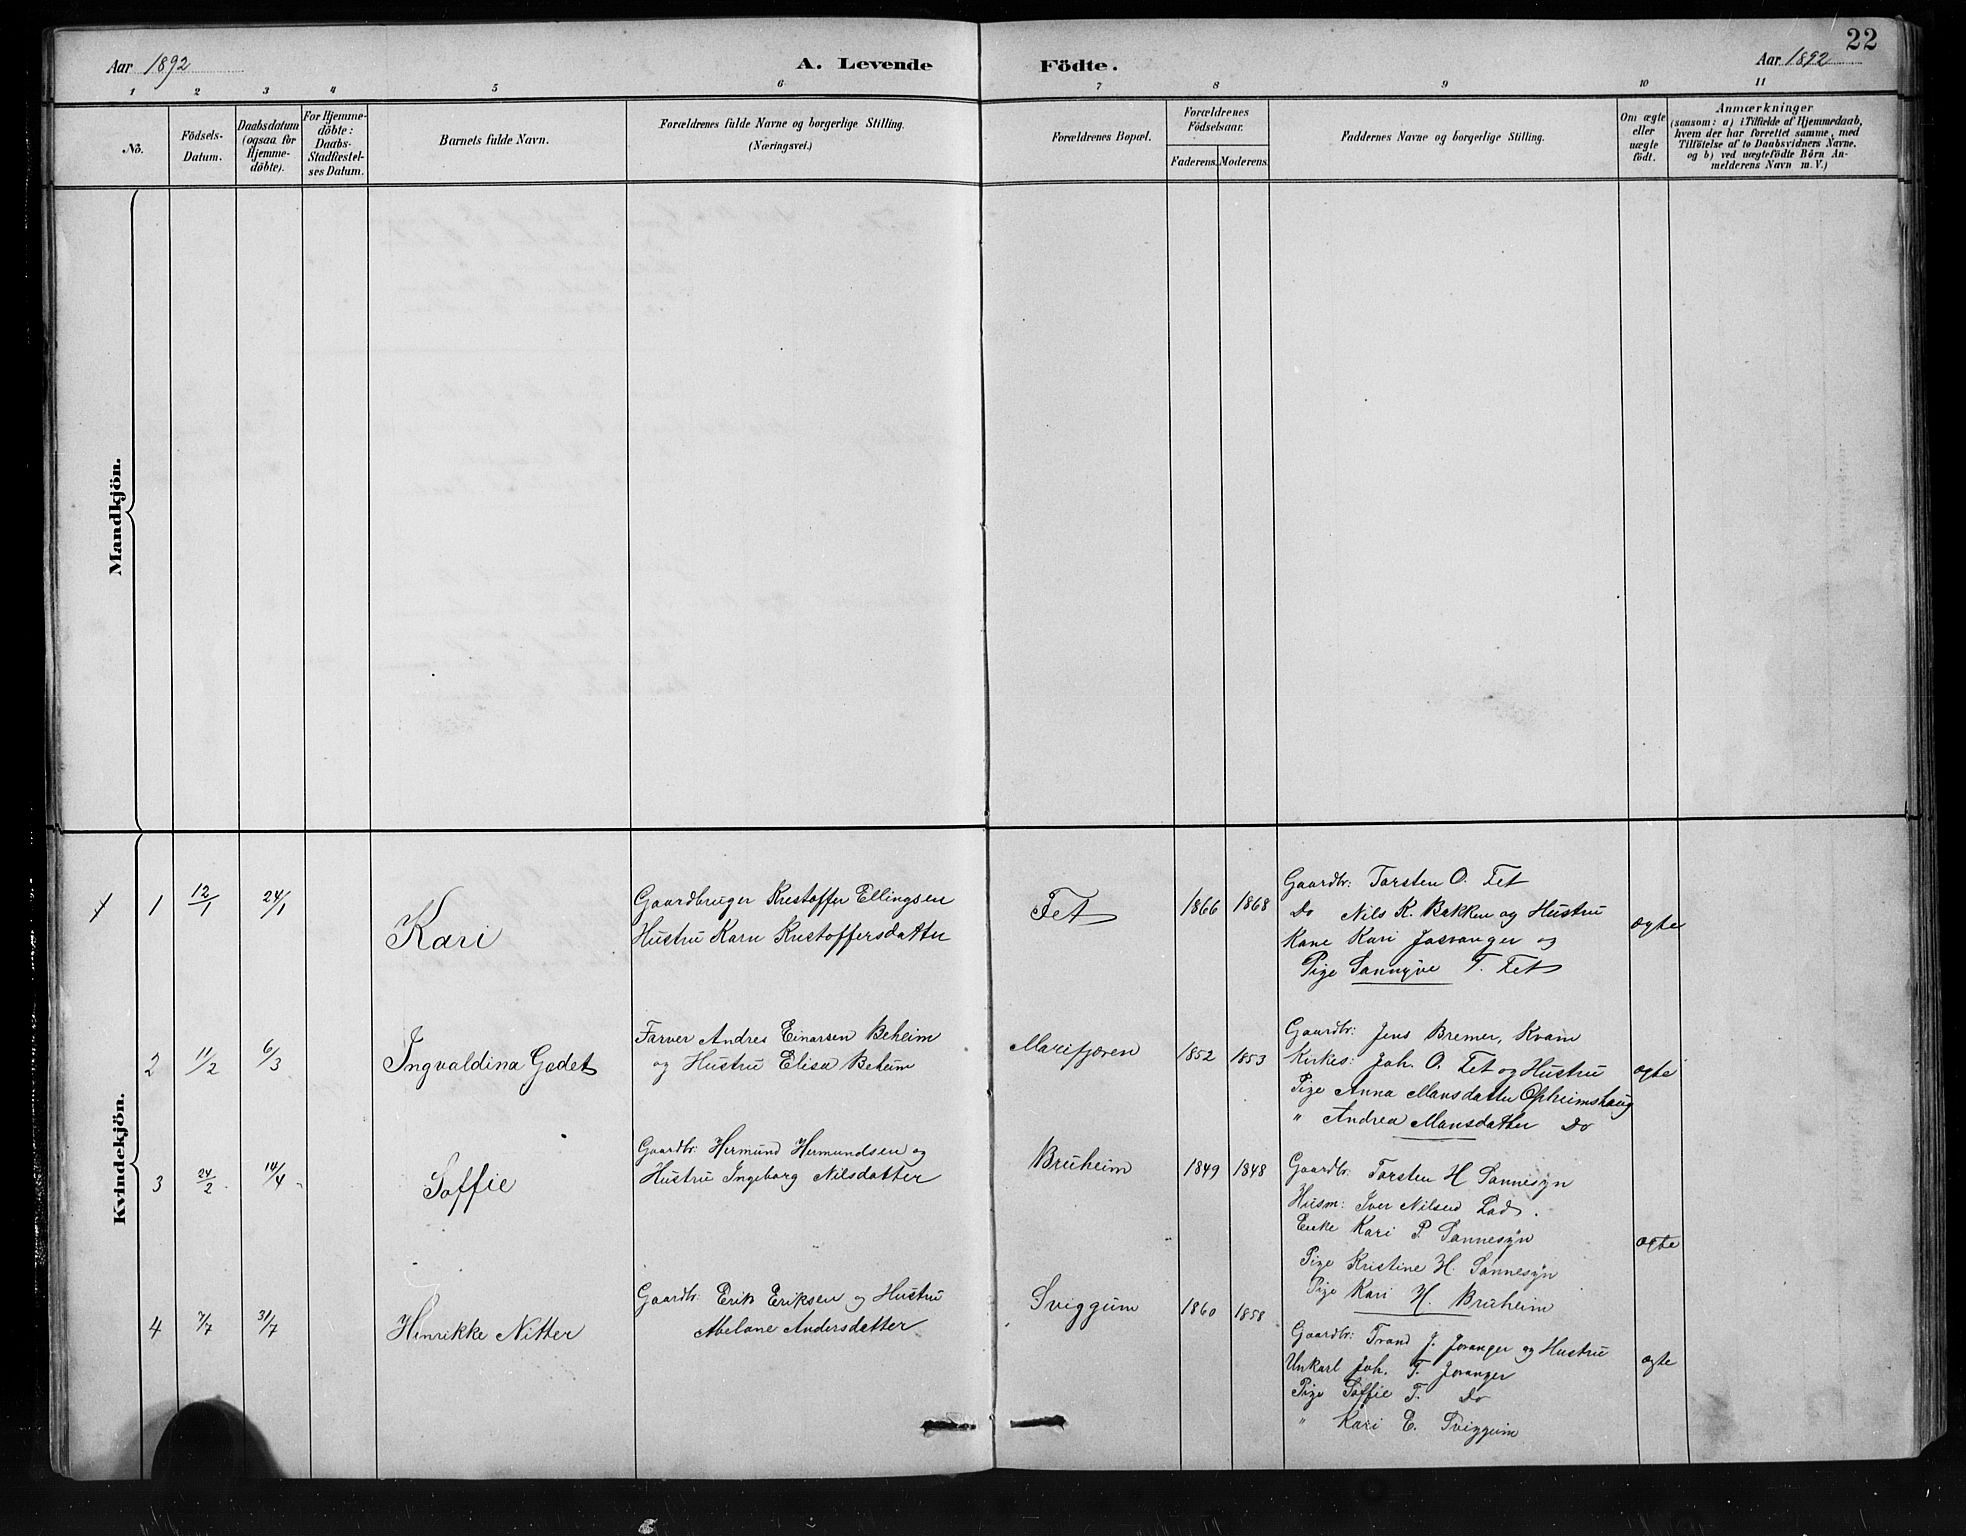 22
Aar 1892
A. Levende Födte.
Aar 1892
1 2 3 4 5 6 7 8 9 10 11
No.
Födsels-Datum.
Daabsdatum (ogsaa for Hjemme-döbte).
For Hjemme-döbte: Daabs-Stadfæstel-ses Datum.
Barnets fulde Navn.
Forældrenes fulde Navne og borgerlige Stilling.
(Næringsvei.)
Forældrenes Bopæl.
Forældrenes Födselsaar.
Faderens. Moderens.
Faddernes Navne og borgerlige Stilling.
Om ægte eller uægte födt.
Anmærkninger
(saasom: a) i Tilfælde af Hjemmedaab,
hvem der har forrettet samme, med
Tilföielse af to Daabsvidners Navne,
og b) ved uægtefödte Börn An-
melderens Navn m. V.)
Mandkjön.
Kvindekjön.
1 12/1 24/1 Kari
Gaardbruger Kristoffer Ellingsen
Hustru Kari Kristoffersdatter
Fet 1866 1868
Gaardbr: Torsten O. Fet
Do Nils K. Bakken og Hustru
Kone Kari Joranger og
Pige Sannøve T. Fet
ægte
2 11/2 6/3 Ingvaldina Gedet
Farver Andres Einarsen Beheim
og Hustru Elisa Beheim
Marifjæren 1852 1853
Gaardbr: Jens Bremer, Kvam
Kirkes: Joh. O. Fet og Hustru
Pige Anna Monsdatter Opheimshaug
" Andrea Monsdatter Do
ægte
3 24/2 14/4 Soffie
Gaardbr: Hermund Hermundsen og
Hustru Ingeborg Nilsdatter
Bruheim 1849 1848
Gaardbr: Torsten H Sonnesyn
Husm: Iver Nilsen Lad.
Enke Kari P Sonnesyn
Pige Kristine H. Sonnesyn
Pige Kari H. Bruheim
ægte
4 7/7 31/7 Henrikke Nitter
Gaardbr: Erik Eriksen og Hustru
Abelone Andersdatter
Sviggum 1860 1858
Gaardbr: Trond J. Joranger og Hustru
Unkarl Joh. T. Joranger
Pige Soffie T. Do
" Kari E. Sviggum
ægte